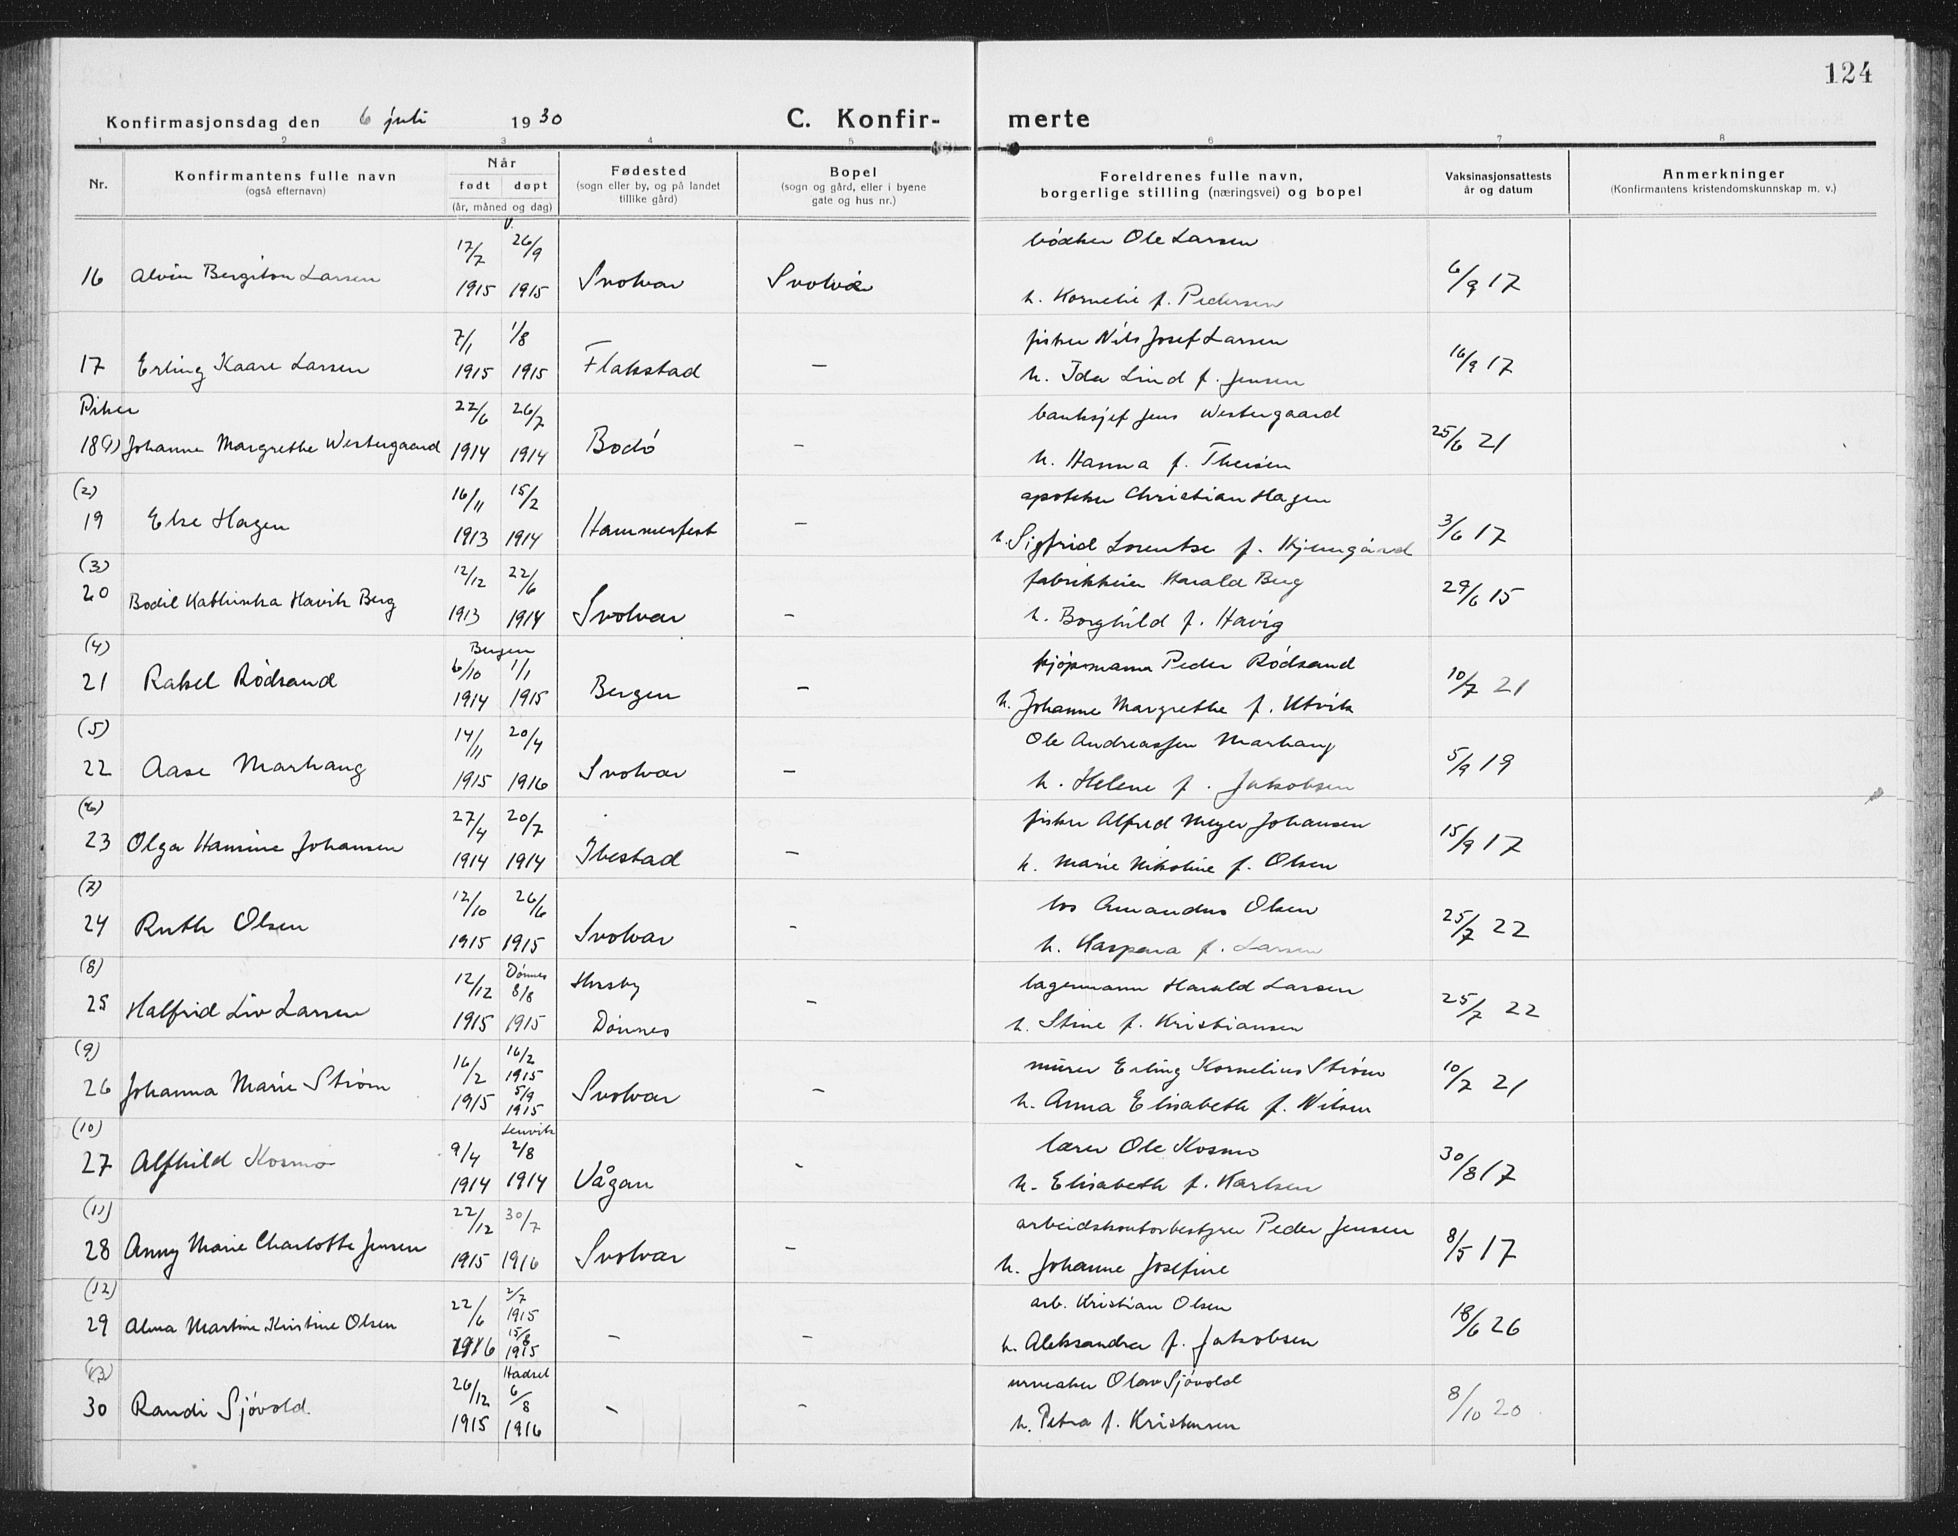 124
Konfirmasjonsdag den 6 juli 1930 C. Konfir- merte
1 2 3 4 5 6 7 8
Nr.
Konfirmantens fulle navn
(også efternavn)
Når
født døpt
(år, måned og dag)
Fødested
(sogn eller by, og på landet
tillike gård)
Bopel
(sogn og gård, eller i byene
gate og hus nr.)
Foreldrenes fulle navn,
borgerlige stilling (næringsvei) og bopel
Vaksinasjonsattests
år og datum
Anmerkninger
(Konfirmantens kristendomskunnskap m. v.)
V.
17/7 26/9 bødker Ole Larsen
16 Alvin Bergiton Larsen 1915 1915 Svolvær Svolvær h. Kornelie f. Pedersen 6/9 17
7/1 1/8 fisker Nils Josef Larsen
17 Erling Kaare Larsen 1915 1915 Flakstad — h. Ida Lind f. Jensen 16/9 17
Piker 22/6 26/7 banksjef Jens Westergaard
18 (1) Johanne Margrethe Westergaard 1914 1914 Bodø — h. Hanna f. Theisen 25/6 21
(2) 16/11 15/2 apoteker Christian Hagen
19 Else Hagen 1913 1914 Hammerfest — h. Sigfrid Lorentse f. 3/6 17
(3) 12/12 22/6 fabrikkeier Harald Berg
20 Bodil Kathinka Havik Berg 1913 1914 Svolvær — h. Borghild f. Havig 29/6 15
(4) Bergen
6/10 1/1 kjøpmann Peder Rødsand
21 Rakel Rødsand 1914 1915 Bergen — h. Johanne Margrethe f. Utvik 10/7 21
(5) 14/11 20/4 Ole Andreassen Marhaug
22 Aase Marhaug 1915 1916 Svolvær — h. Helene f. Jakobsen 5/9 19
(6) 27/4 20/7 fisker Alfred Meyer Johansen
23 Olga Hansine Johansen 1914 1914 Ibestad — h. Marie Nikoline f. Olsen 15/9 17
(7) 12/10 26/6 los Amandus Olsen
24 Ruth Olsen 1915 1915 Svolvær — h. Kaspara f. Larsen 25/7 22
(8) Dønnes
12/12 8/8 Husby lagermann Harald Larsen
25 Halfrid Liv Larsen 1915 1915 Dønnes — h. Stine f. Kristiansen 25/7 22
(9) 16/2 16/2 1915 murer Erling Kornelius Strøm
26 Johanna Marie Strøm 1915 5/9 1915 Svolvær — h. Anna Elisabeth f. Nilsen 10/7 21
(10) Lenvik
9/4 2/8 lærer Ole Kosmo
27 Alfhild Kosmo 1914 1914 Vågan — h. Elisabeth f. Karlsen 30/8 17
(11) 22/12 30/7 arbeidskontorbestyrer Peder Jensen
28 Anny Marie Charlotte Jensen 1915 1916 Svolvær — h. Johanne Josefine 8/5 17
(12) 22/6 2/7 1915 arb. Kristian Olsen
29 Alma Martine Kristine Olsen 1916 15/8 1915 — — h. Aleksandra f. Jakobsen 18/6 26
(13) Hadsel
26/12 6/8 urmaker Olav Sjøvold
30 Randi Sjøvold 1915 1916 — — h. Petra f. Kristensen 8/10 20